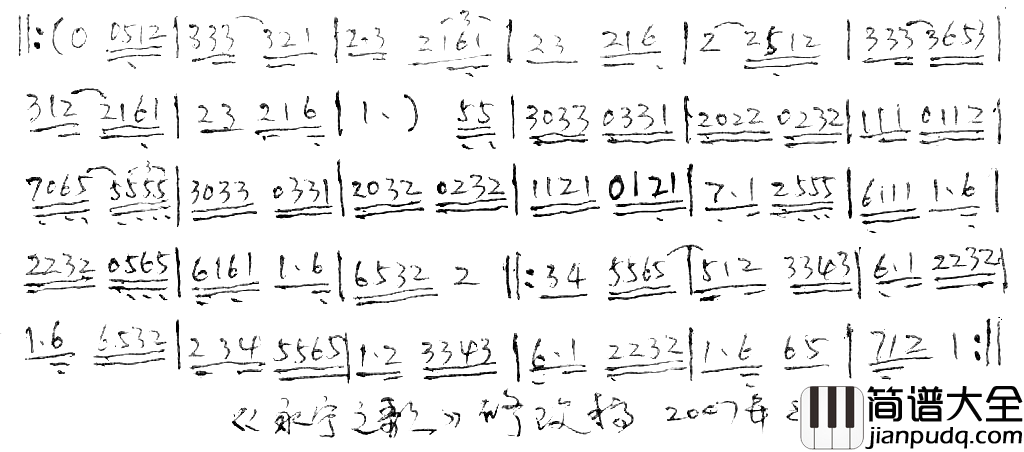 ‖:(0 0512|333 321|2·3 2161|23 216|2 2512|333 3653|
312 2161|23 216|1·) 55|3033 0331|2022 0232|111 0112|
7065 5555|3033 0331|2032 0232|1121 0121|7·1 2555|6111 1·6|
2232 0565|6161 1·6|6532 2‖:34 5565|512 3343|6·1 2232|
1·6 6532|234 5565|1·2 3343|6·1 2232|1·6 65|712 1:‖
《永宁之歌》修改稿 2007年
简谱大全
jianpudq.com